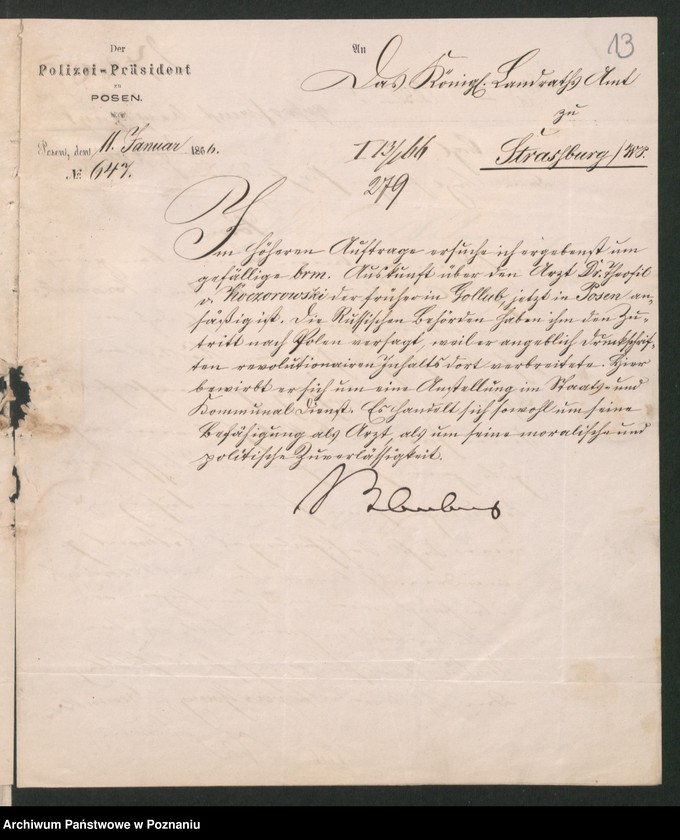 13
Der
Polizei-Präsident
zu
POSEN.
Posen, den 11. Januar 1866.
№ 647.
An
Das Königl. Landraths Amt
zu
Strasburg / WP.
I 13/1 66
279
Im höheren Auftrage ersuche ich ergebenst um
gefällige brm. Auskunft über den Arzt Dr. Theofil
v. Koczorowski der früher in Gollub, jetzt in Posen an-
säßig ist. Die Russischen Behörden haben ihm den Zu-
tritt nach Polen versagt, weil er angeblich Druckschrif-
ten revolutionairen Inhalts dort verbreitete. Hier
bewirbt er sich um eine Anstellung im Staats- und
Kommunal Dienst. Es handelt sich sowohl um seine
Befähigung als Arzt, als um seine moralische und
politische Zuverlässigkeit.
Archiwum Państwowe w Poznaniu